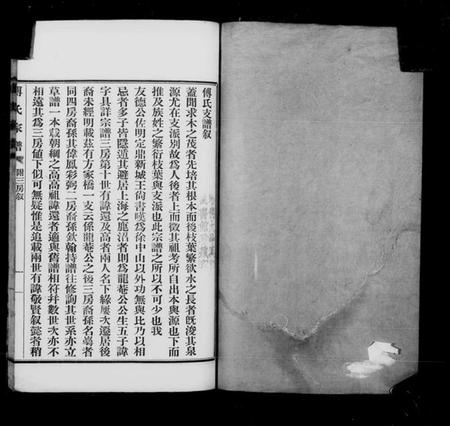 傅氏支譜叙
蓋聞求木之茂者先培其根本而後枝葉繁欲水之長者旣浚其泉
源尤在支派別故爲人後者上而徵其祖考所自出本與源也下而
推及族姓之繁衍枝葉與支派也此宗譜之所以不可少也我
友德公佐明定鼎新城王尙書嘆爲徐中山以外功無與比乃以相
忌者多子皆隱遁其避居上海之鹿沼者則爲龍菴公公生五子諱
字具詳宗譜三房第十世有諱還及高者兩人名下緣屢次遷居後
裔未經明載茲有方家橋一支云係龍菴公之後三房裔孫名 者
同四房裔孫其偉鳳彩弼二房裔孫欽翰持譜往修詢其世系亦立
草譜一本 朝綱之高高祖諱還者適與舊譜相符幷數世次亦不
相遠其爲三房値下似可無疑惟是追載兩世有諱敬賢叙 者稍
傅氏家譜
附三房叙